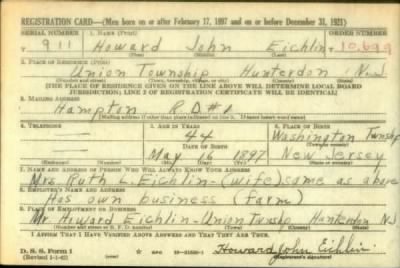 REGISTRATION CARD—(Men born on or after February 17, 1897 and on or before December 31, 1921)
SERIAL NUMBER 1. NAME (Print) ORDER NUMBER
T 911 Howard John Eichlin T 10,699
(First) (Middle) (Last)
2. PLACE OF RESIDENCE (Print)
Union Township Hunterdon N.J
(Number and street) (Town, township, village, or city) (County) (State)
[THE PLACE OF RESIDENCE GIVEN ON THE LINE ABOVE WILL DETERMINE LOCAL BOARD
JURISDICTION; LINE 2 OF REGISTRATION CERTIFICATE WILL BE IDENTICAL]
3. MAILING ADDRESS
Hampton R.D#1
[Mailing address if other than place indicated on line 2. If same insert word same]
4. TELEPHONE 5. AGE IN YEARS 6. PLACE OF BIRTH
44 Washington Twnshp
DATE OF BIRTH (Town or county)
May 16 1897 New Jersey
(Exchange) (Number) (Mo.) (Day) (Yr.) (State or country)
7. NAME AND ADDRESS OF PERSON WHO WILL ALWAYS KNOW YOUR ADDRESS
Mrs. Ruth L. Eichlin-(wife) same as above
8. EMPLOYER'S NAME AND ADDRESS
Has own business (farm)
9. PLACE OF EMPLOYMENT OR BUSINESS
Mr. Howard Eichlin-Union Twnshp Hunterdon NJ
(Number and street or R. F. D. number) (Town) (County) (State)
I AFFIRM THAT I HAVE VERIFIED ABOVE ANSWERS AND THAT THEY ARE TRUE.
D. S. S. Form 1
(Revised 1-1-42) GPO Howard John Eichlin
(Registrant's signature)